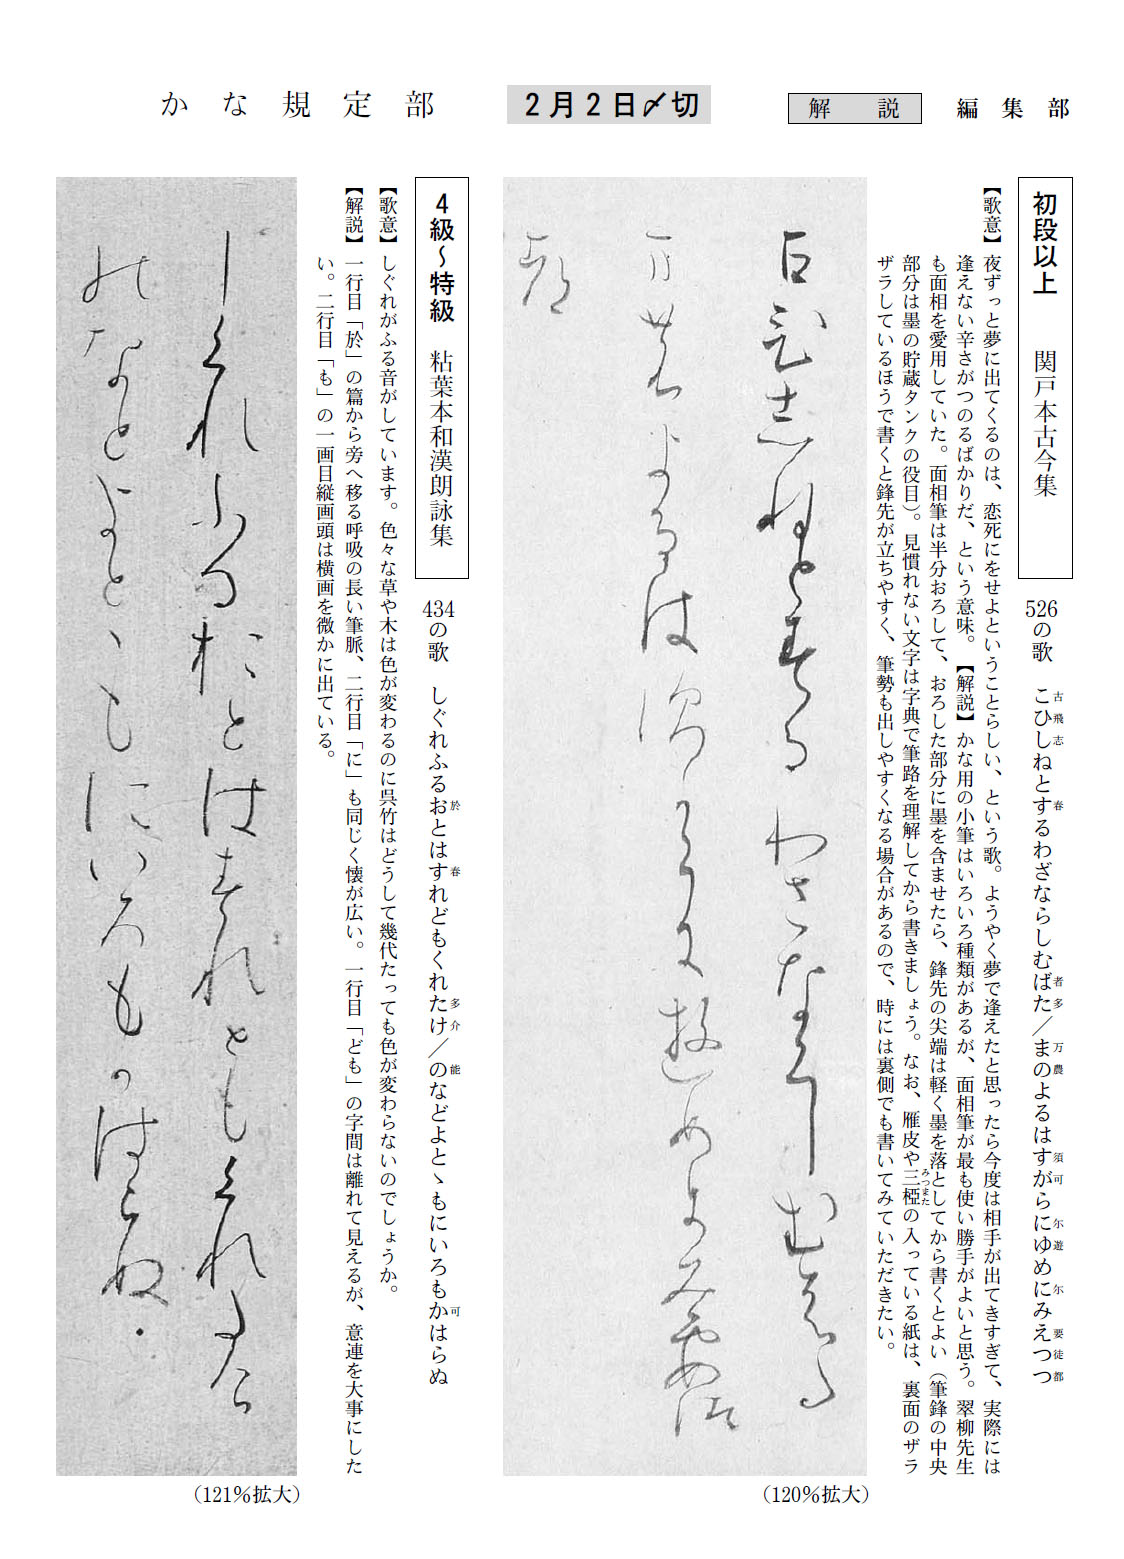 かな規定部
2月2日〆切
解説
編集部
初段以上 関戸本古今集
526の歌 こひしねとするわざならしむばた／まのよるはすがらにゆめにみえつつ
古飛志 春 者多 万農 須可 尓遊 尓 要徒都
【歌意】夜ずっと夢に出てくるのは、恋死にをせよということらしい、という歌。ようやく夢で逢えたと思ったら今度は相手が出てきすぎて、実際には
逢えない辛さがつのるばかりだ、という意味。【解説】かな用の小筆はいろいろ種類があるが、面相筆が最も使い勝手がよいと思う。翠柳先生
も面相を愛用していた。面相筆は半分おろして、おろした部分に墨を含ませたら、鋒先の尖端は軽く墨を落としてから書くとよい（筆鋒の中央
部分は墨の貯蔵タンクの役目）。見慣れない文字は字典で筆路を理解してから書きましょう。なお、雁皮や三椏の入っている紙は、裏面のザラ
みつまた
ザラしているほうで書くと鋒先が立ちやすく、筆勢も出しやすくなる場合があるので、時には裏側でも書いてみていただきたい。
古飛志ねと春るわさならしむ者多
万農よるは須可らに遊めにみ要徒
都
（120％拡大）
4級〜特級 粘葉本和漢朗詠集
434の歌 しぐれふるおとはすれどもくれたけ／のなどよとゝもにいろもかはらぬ
於 春 多介 能 可
【歌意】しぐれがふる音がしています。色々な草や木は色が変わるのに呉竹はどうして幾代たっても色が変わらないのでしょうか。
【解説】一行目「於」の篇から旁へ移る呼吸の長い筆脈、二行目「に」も同じく懐が広い。一行目「ども」の字間は離れて見えるが、意連を大事にした
い。二行目「も」の一画目縦画頭は横画を微かに出ている。
しくれふる於とは春れともくれ多介
能なとよとゝもにいろも可はらぬ
（121％拡大）